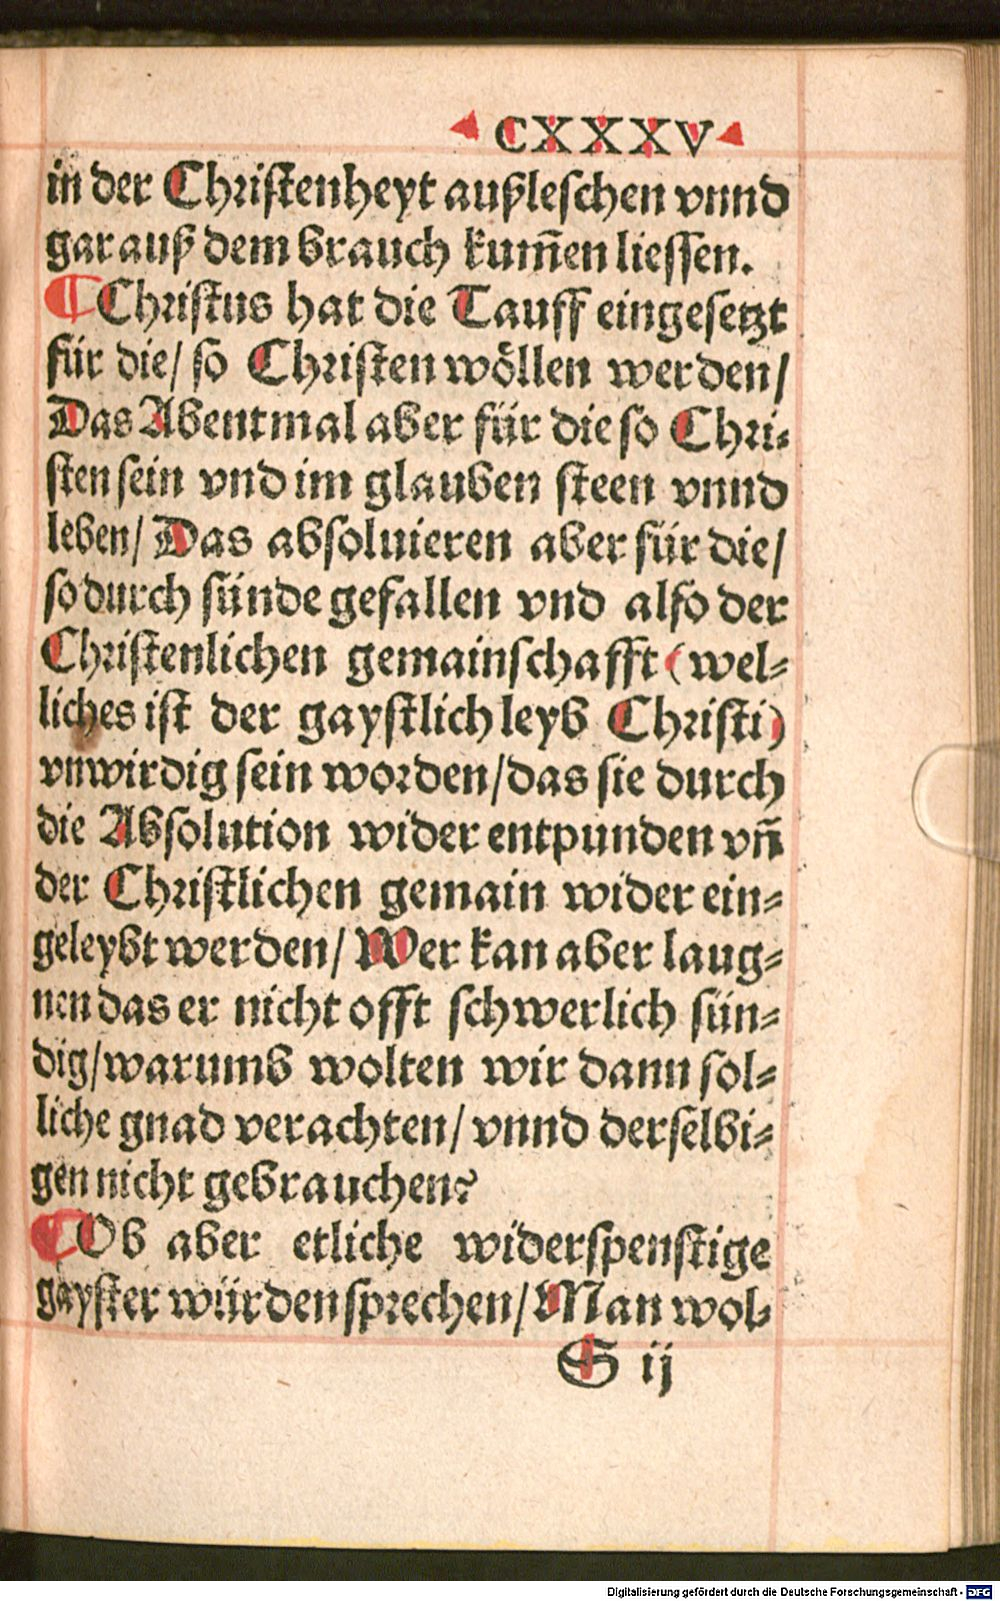 CXXXV
in der Christenheyt außleschen vnnd
gar auß dem brauch kum̃en liessen.
¶Christus hat die Tauff eingesetzt
für die/ so Christen wöllen werden/
Das Abentmal aber für die so Chri⸗
sten sein vnd im glauben steen vnnd
leben/ Das absoluieren aber für die/
so durch sünde gefallen vnd also der
Christenlichen gemainschafft (wel⸗
liches ist der gaystlich leyb Christi)
vnwirdig sein worden/das sie durch
die Absolution wider entpunden vñ
der Christlichen gemain wider ein⸗
geleybt werden/ Wer kan aber laug⸗
nen das er nicht offt schwerlich sün⸗
dig/warumb wolten wir dann sol⸗
liche gnad verachten/ vnnd derselbi⸗
gen nicht gebrauchen?
¶Ob aber etliche widerspenstige
gayster würden sprechen/ Man wol⸗
S ij
Digitalisierung gefördert durch die Deutsche Forschungsgemeinschaft - DFG